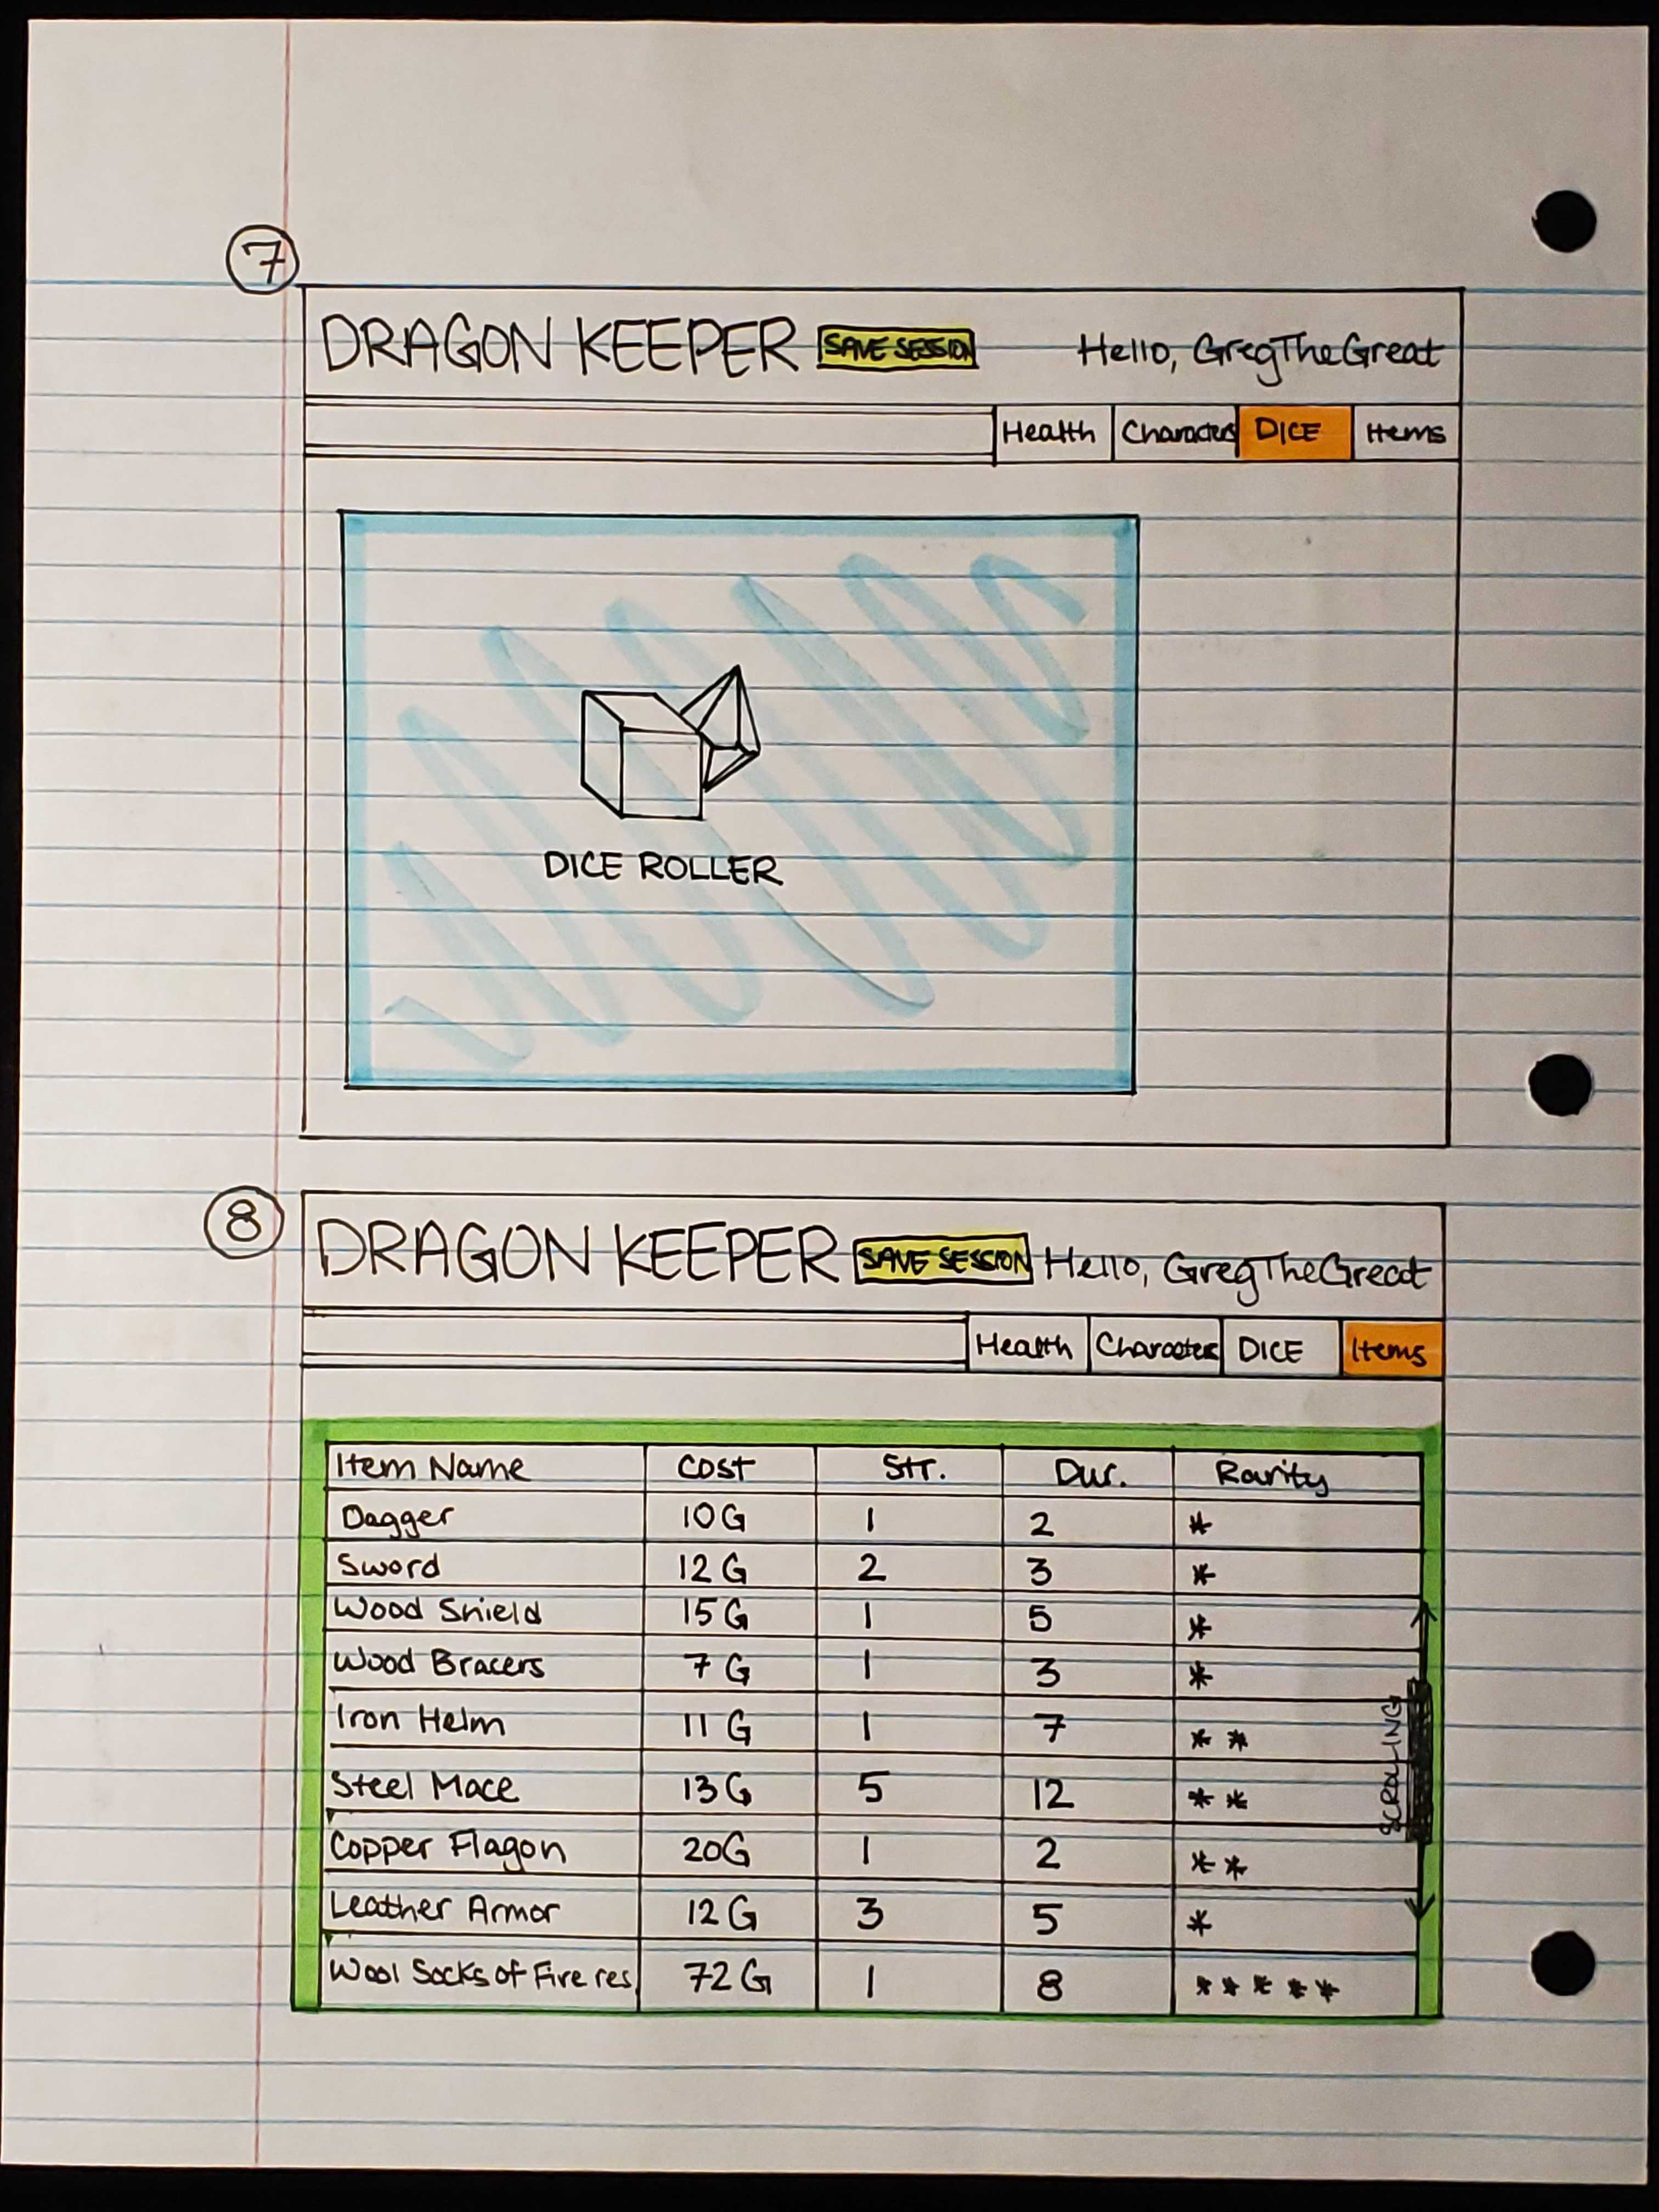 7
DRAGON KEEPER SAVE SESSION Hello, GregTheGreat
Health Characters DICE Items
DICE ROLLER
8
DRAGON KEEPER SAVE SESSION Hello, GregTheGreat
Health Characters DICE Items
Item Name Cost Str. Dur. Rarity
Dagger 10G 1 2 *
Sword 12G 2 3 *
Wood Shield 15G 1 5 *
Wood Bracers 7G 1 3 *
Iron Helm 11G 1 7 * *
Steel Mace 13G 5 12 * *
Copper Flagon 20G 1 2 * *
Leather Armor 12G 3 5 *
Wool Socks of Fire res 72G 1 8 * * * * *
SCROLLING